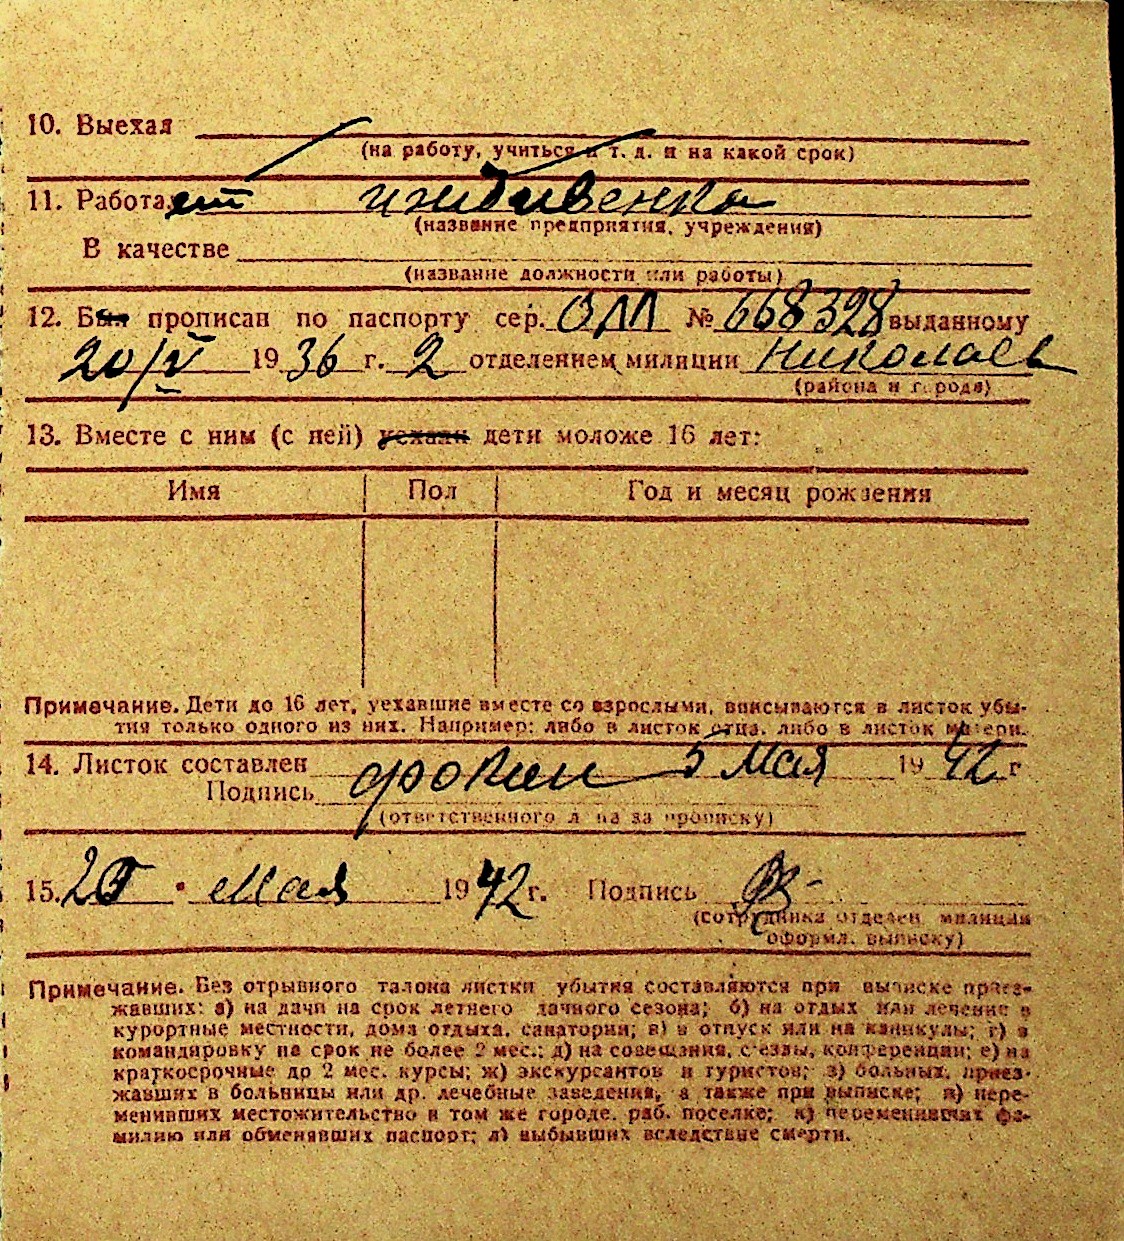 10. Выехал
(на работу, учиться и т. д. и на какой срок)
11. Работает иждивенка
(название предприятия, учреждения)
В качестве
(название должности или работы)
12. Был прописан по паспорту сер. ОЛЛ № 668328 выданному
20/V 1936 г. 2 отделением милиции Николаев
(района и города)
13. Вместе с ним (с ней) уехали дети моложе 16 лет:
Имя Пол Год и месяц рождения
Примечание. Дети до 16 лет, уехавшие вместе со взрослыми, вписываются в листок убы-
тия только одного из них. Например: либо в листок отца, либо в листок матери.
14. Листок составлен 5 Мая 1942 г
Подпись
(ответственного лица за прописку)
15. Мая 1942 г. Подпись
(сотрудника отделен. милиции
оформл. выписку)
Примечание. Без отрывного талона листки убытия составляются при выписке приез-
жавших: а) на дачи на срок летнего дачного сезона; б) на отдых или лечение в
курортные местности, дома отдыха, санатории; в) в отпуск или на каникулы; г) в
командировку на срок не более 2 мес.; д) на совещания, с'езды, конференции; е) на
краткосрочные до 2 мес. курсы; ж) экскурсантов и туристов; з) больных, приез-
жавших в больницы или др. лечебные заведения, а также при выписке; и) пере-
менивших местожительство в том же городе, раб. поселке; к) переменивших фа-
милию или обменявших паспорт; л) выбывших вследствие смерти.